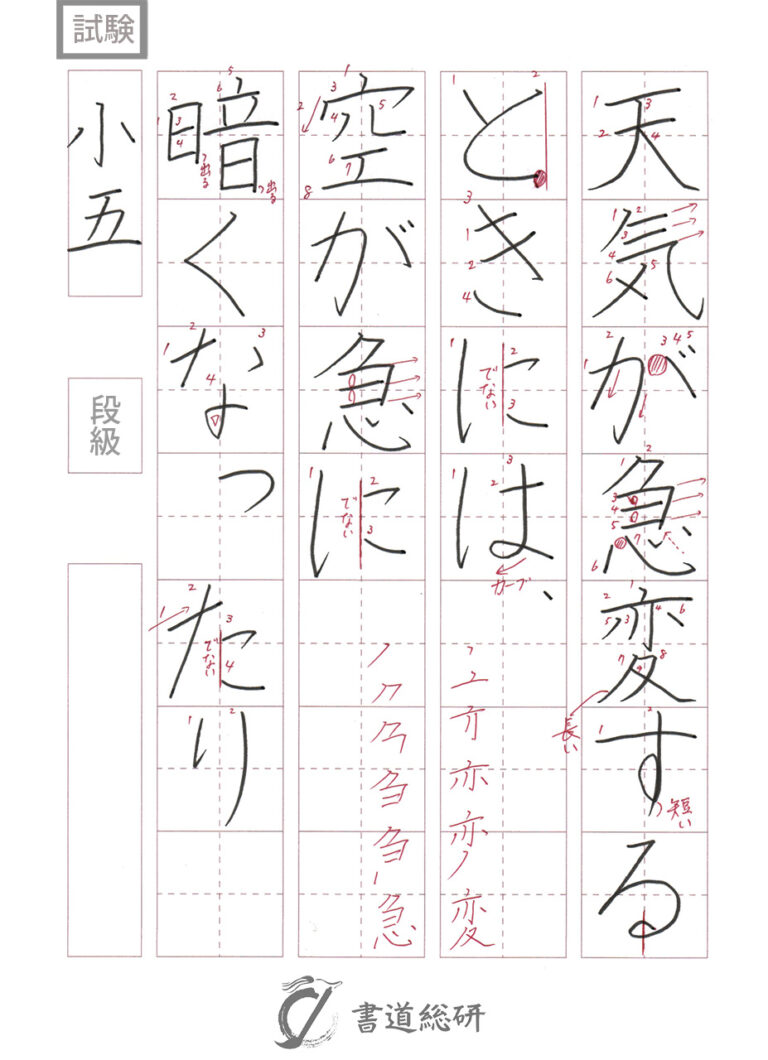 試験
天気が急変する
ときには、
空が急に
暗くなったり
小五
段級
長い
短い
でない
カーブ
でない
出る
出る
でない
書道総研